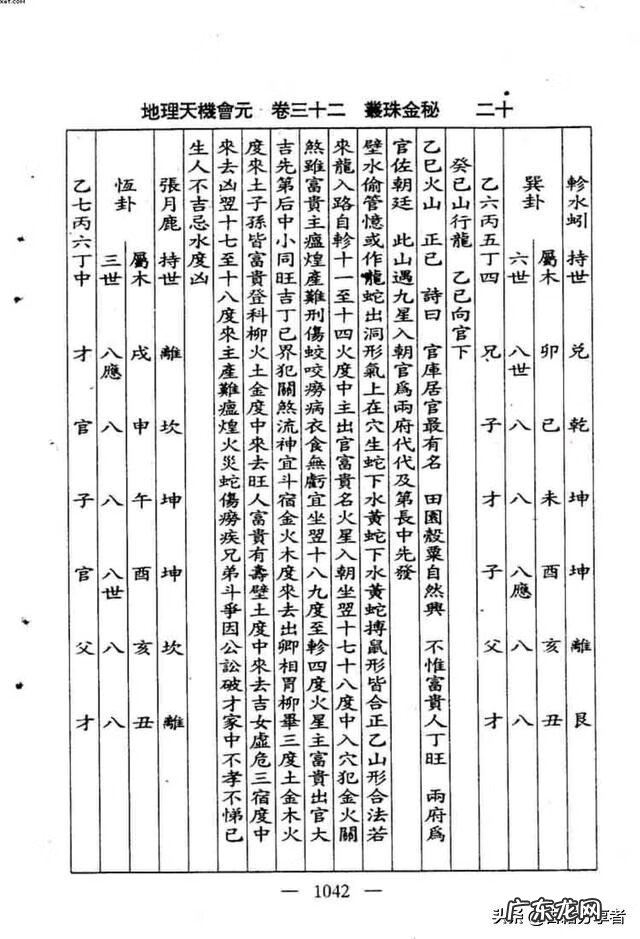 地理天機會元 卷三十二 叢珠金秘 二十
軫水蚓 持世 兑 乾 坤 坤 離 艮
巽卦 屬木 卯 巳 未 酉 亥 丑
六世 八世 八 八 八應 八 八
乙六丙五丁四 兄 子 才 子 父 才
癸巳山行龍 乙巳向官下
乙巳火山 正巳 詩曰 官庫居官最有名 田園穀粟自然興 不惟富貴人丁旺 兩府為
官佐朝廷 此山遇九星入朝官為兩府代代及第長中先發
壁水偷管憶或作龍蛇出洞形氣上在穴生蛇下水黃蛇下水黃蛇搏鼠形皆合正乙山形合法若
來龍入路自軫十一至十四火度中主出官富貴名火星入朝坐翌十七十八度中入穴犯金火關
煞雖富貴主瘟煌產難刑傷蛟咬癆病衣食無虧宜坐翌十八九度至軫四度火星主富貴出官大
吉先第后中小同旺吉丁巳界犯關煞流神宜斗宿金火木度來去出卿相胃柳畢三度土金木火
度來土子孫皆富貴登科柳火土金度中來去旺人富貴有壽壁土度中來去吉女虛危三宿度中
來去凶翌十七至十八度來主產難瘟煌火災蛇傷癆疾兄弟斗爭因公訟破才家中不孝不悌已
生人不吉忌水度凶
張月鹿 持世 離 坎 坤 坤 坎 離
恆卦 屬木 戌 申 午 酉 亥 丑
三世 八應 八 八 八世 八 八
乙七丙六丁中 才 官 子 官 父 才
— 1042 —
广东龙网